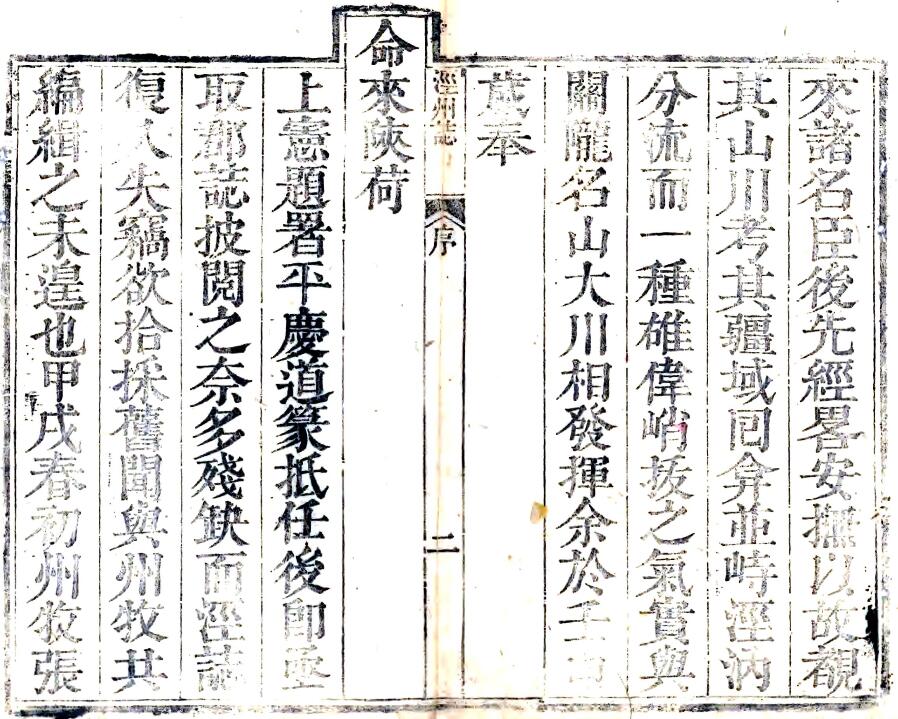 來諸名臣後先經畧安撫以故覩
其山川考其疆域囘弇並峙涇汭
分流而一種雄偉峭拔之氣實與
關隴名山大川相發揮余於壬申
歲奉
涇州誌 序 二
命來陜荷
上憲題署平慶道篆抵任後卽亟
取郡誌披閱之奈多殘缺而涇誌
復久失欲拾採舊聞與州牧共
編緝之未遑也甲戌春初州牧張